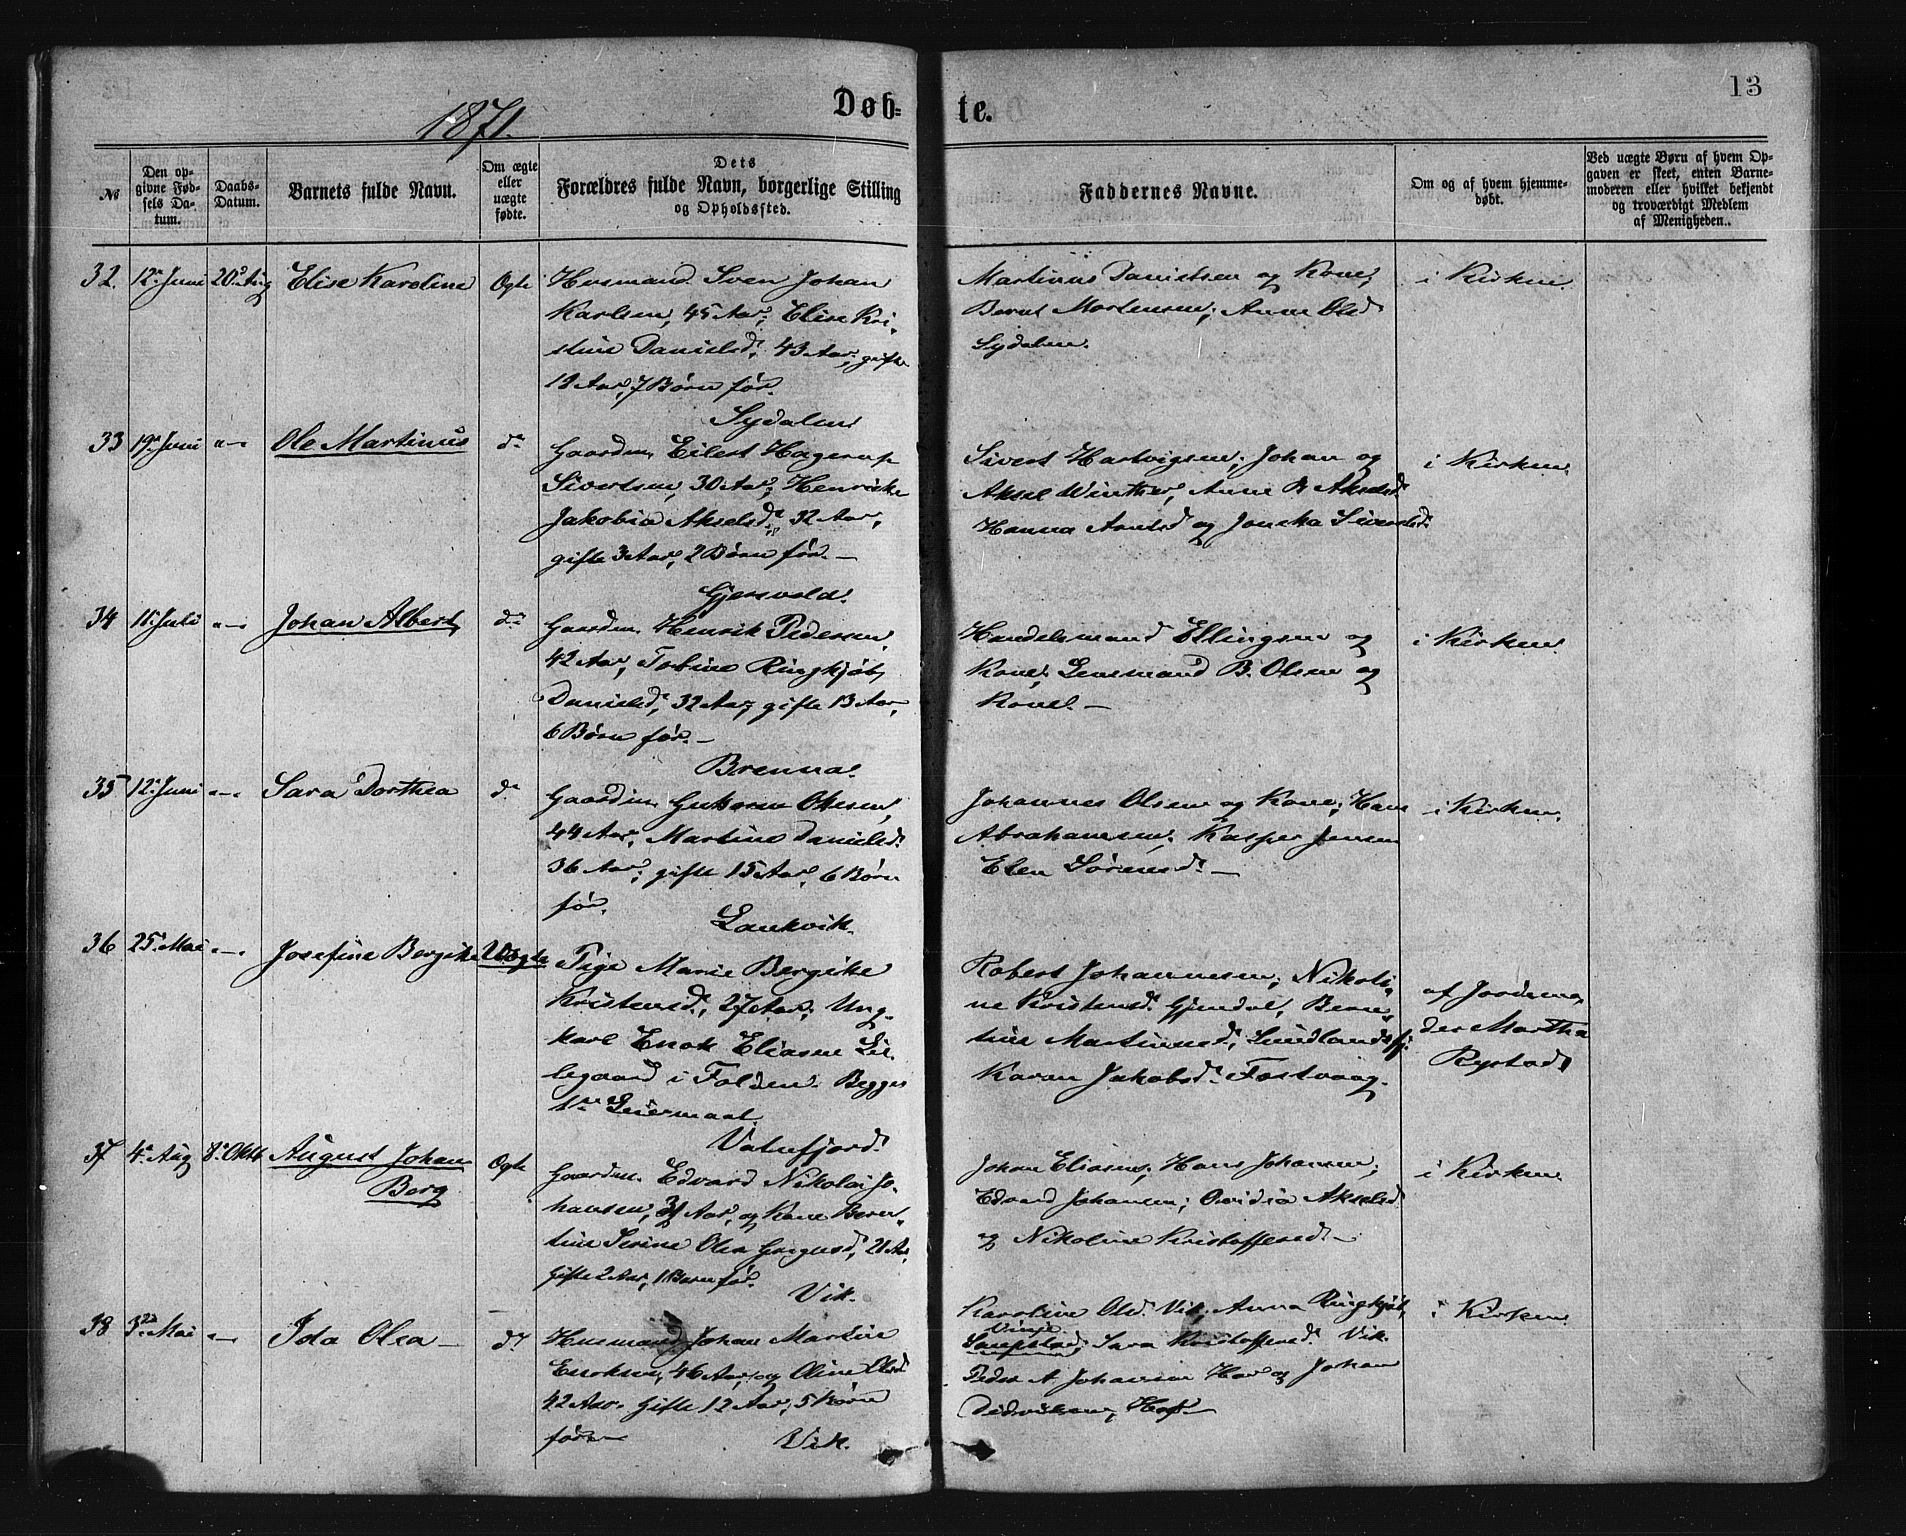 13
1871.
Døb-
te.
№
Den op-
givne Fød-
sels Da-
tum.
Daabs-
Datum.
Barnets fulde Navn.
Om ægte
eller
uægte
fødte.
Dets
Forældres fulde Navn, borgerlige Stilling
og Opholdssted.
Faddernes Navne.
Om og af hvem hjemme-
døbt.
Ved uægte Børn af hvem Op-
gaven er skeet, enten Barne-
moderen eller hvilket bekjendt
og troværdigt Medlem
af Menigheden.
32. 12te Juni 20de Aug Elise Karoline Ægte
Husmand Sven Johan
Karlsen, 45 Aar; Elise Kri-
stine Danielsd. 43 Aar, gifte
12 Aar, 7 Børn før.
Sydalen
Martinus Danielsen og Kone,
Bernt Mortensen, Anne Olsd
Sydalen.
i Kirken.
33 19de Juni Ole Martinus do
Gaardm. Eilert Hagerup
Sivertsen, 30 Aar, Henrikke
Jakobia Akselsd. 32 Aar,
gifte 3 Aar, 2 Børn før. —
Gjersvold.
Sivert Hartvigsen, Johan og
Aksel Winther, Anne B Akselsd.
Hanna Arntsd og Jonetta Sivertsd.
i Kirken.
34 11te Juli Johan Albert do
Gaardm. Henrik Pedersen,
42 Aar, Tobine Ringkjøb
Danielsd, 32 Aar, gifte 13 Aar,
6 Børn før. —
Brenna.
Handelsmand Ellingsen og
Kone, Lensmand B. Olsen og
Kone. —
i Kirken
35 12te Juni Sara Dorthea do
Gaardm. Guttorm Olsen,
44 Aar, Martine Danielsd.
36 Aar, gifte 15 Aar, 6 Børn
før.
Laukvik.
Johannes Olsen og Kone, Hans
Abrahamsen, Kasper Jensen
Elen Sørensd. —
i Kirken.
36 25de Mai Josefine Bergitte Uægte
Pige Marie Bergitte
Kristensd, 27 Aar, Ung-
karl Enok Eliasen Lil-
legaard i Folden. Begges
1ste Leiermaal.
Vatnfjord.
Robert Johannesen, Nikoli-
ne Kristensd. Bern-
tine Martinsd,
Karen Jakobsd. Fostvaag.
af Jordemo-
der Martha
Rystad
37 4de Aug 8de Oktb August Johan
Berg
Ægte
Gaardm. Edvard Nikolai Jo-
hansen, Aar, og Kone Bern-
tine Serine Olea Gregusd, 21 Aar,
Gifte 2 Aar, 1 Barn før.
Vik.
Johan Eliasen, Hans Johansen,
Edvard Johansen, Ovidia Akselsd
og Nikoline Kristoffersd. —
i Kirken
38 3die Mai Ida Olea — do
Husmand Johan Martin
Enoksen, 46 Aar, og Oline Olsd
42 Aar. Gifte 12 Aar, 5 Børn
før. —
Vik.
Karoline Olsd. Vik, Anna Ringkjøb,
Vinje
Sara Kristoffersd. Vik.
Peder A. Johansen Hov og Johan
Didriksen, Hov —
i Kirken